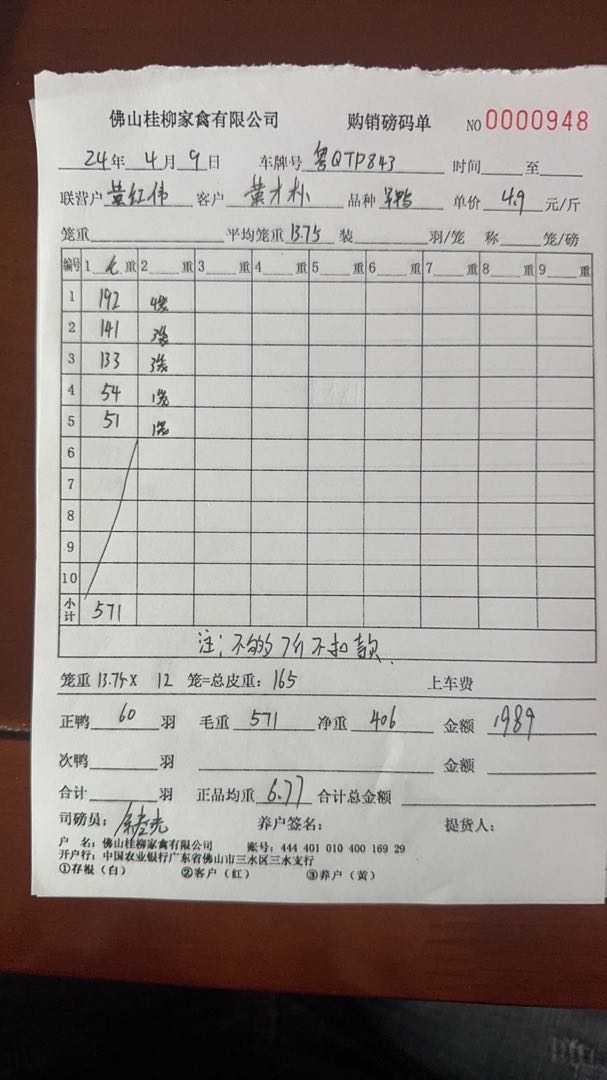 佛山桂柳家禽有限公司 购销磅码单 NO 0000948
24年 4月 9日 车牌号 粤QTP843 时间 至
联营户 黄红伟 客户 黄才 品种 单价 4.9 元/斤
笼重 平均笼重 13.75 装 羽/笼 称 笼/磅
编号 1 毛 重 2 重 3 重 4 重 5 重 6 重 7 重 8 重 9 重
1 192 4笼
2 141 3笼
3 133 3笼
4 54 1笼
5 51 1笼
6
7
8
9
10
小计 571
注：不够7斤不扣款.
笼重 13.75 x 12 笼=总皮重：165 上车费
正鸭 60 羽 毛重 571 净重 406 金额 1989
次鸭 羽 金额
合计 羽 正品均重 6.77 合计总金额
司磅员： 养户签名： 提货人：
户 名：佛山桂柳家禽有限公司 账号：444 401 010 400 169 29
开户行：中国农业银行广东省佛山市三水区三水支行
①存根（白） ②客户（红） ③养户（黄）